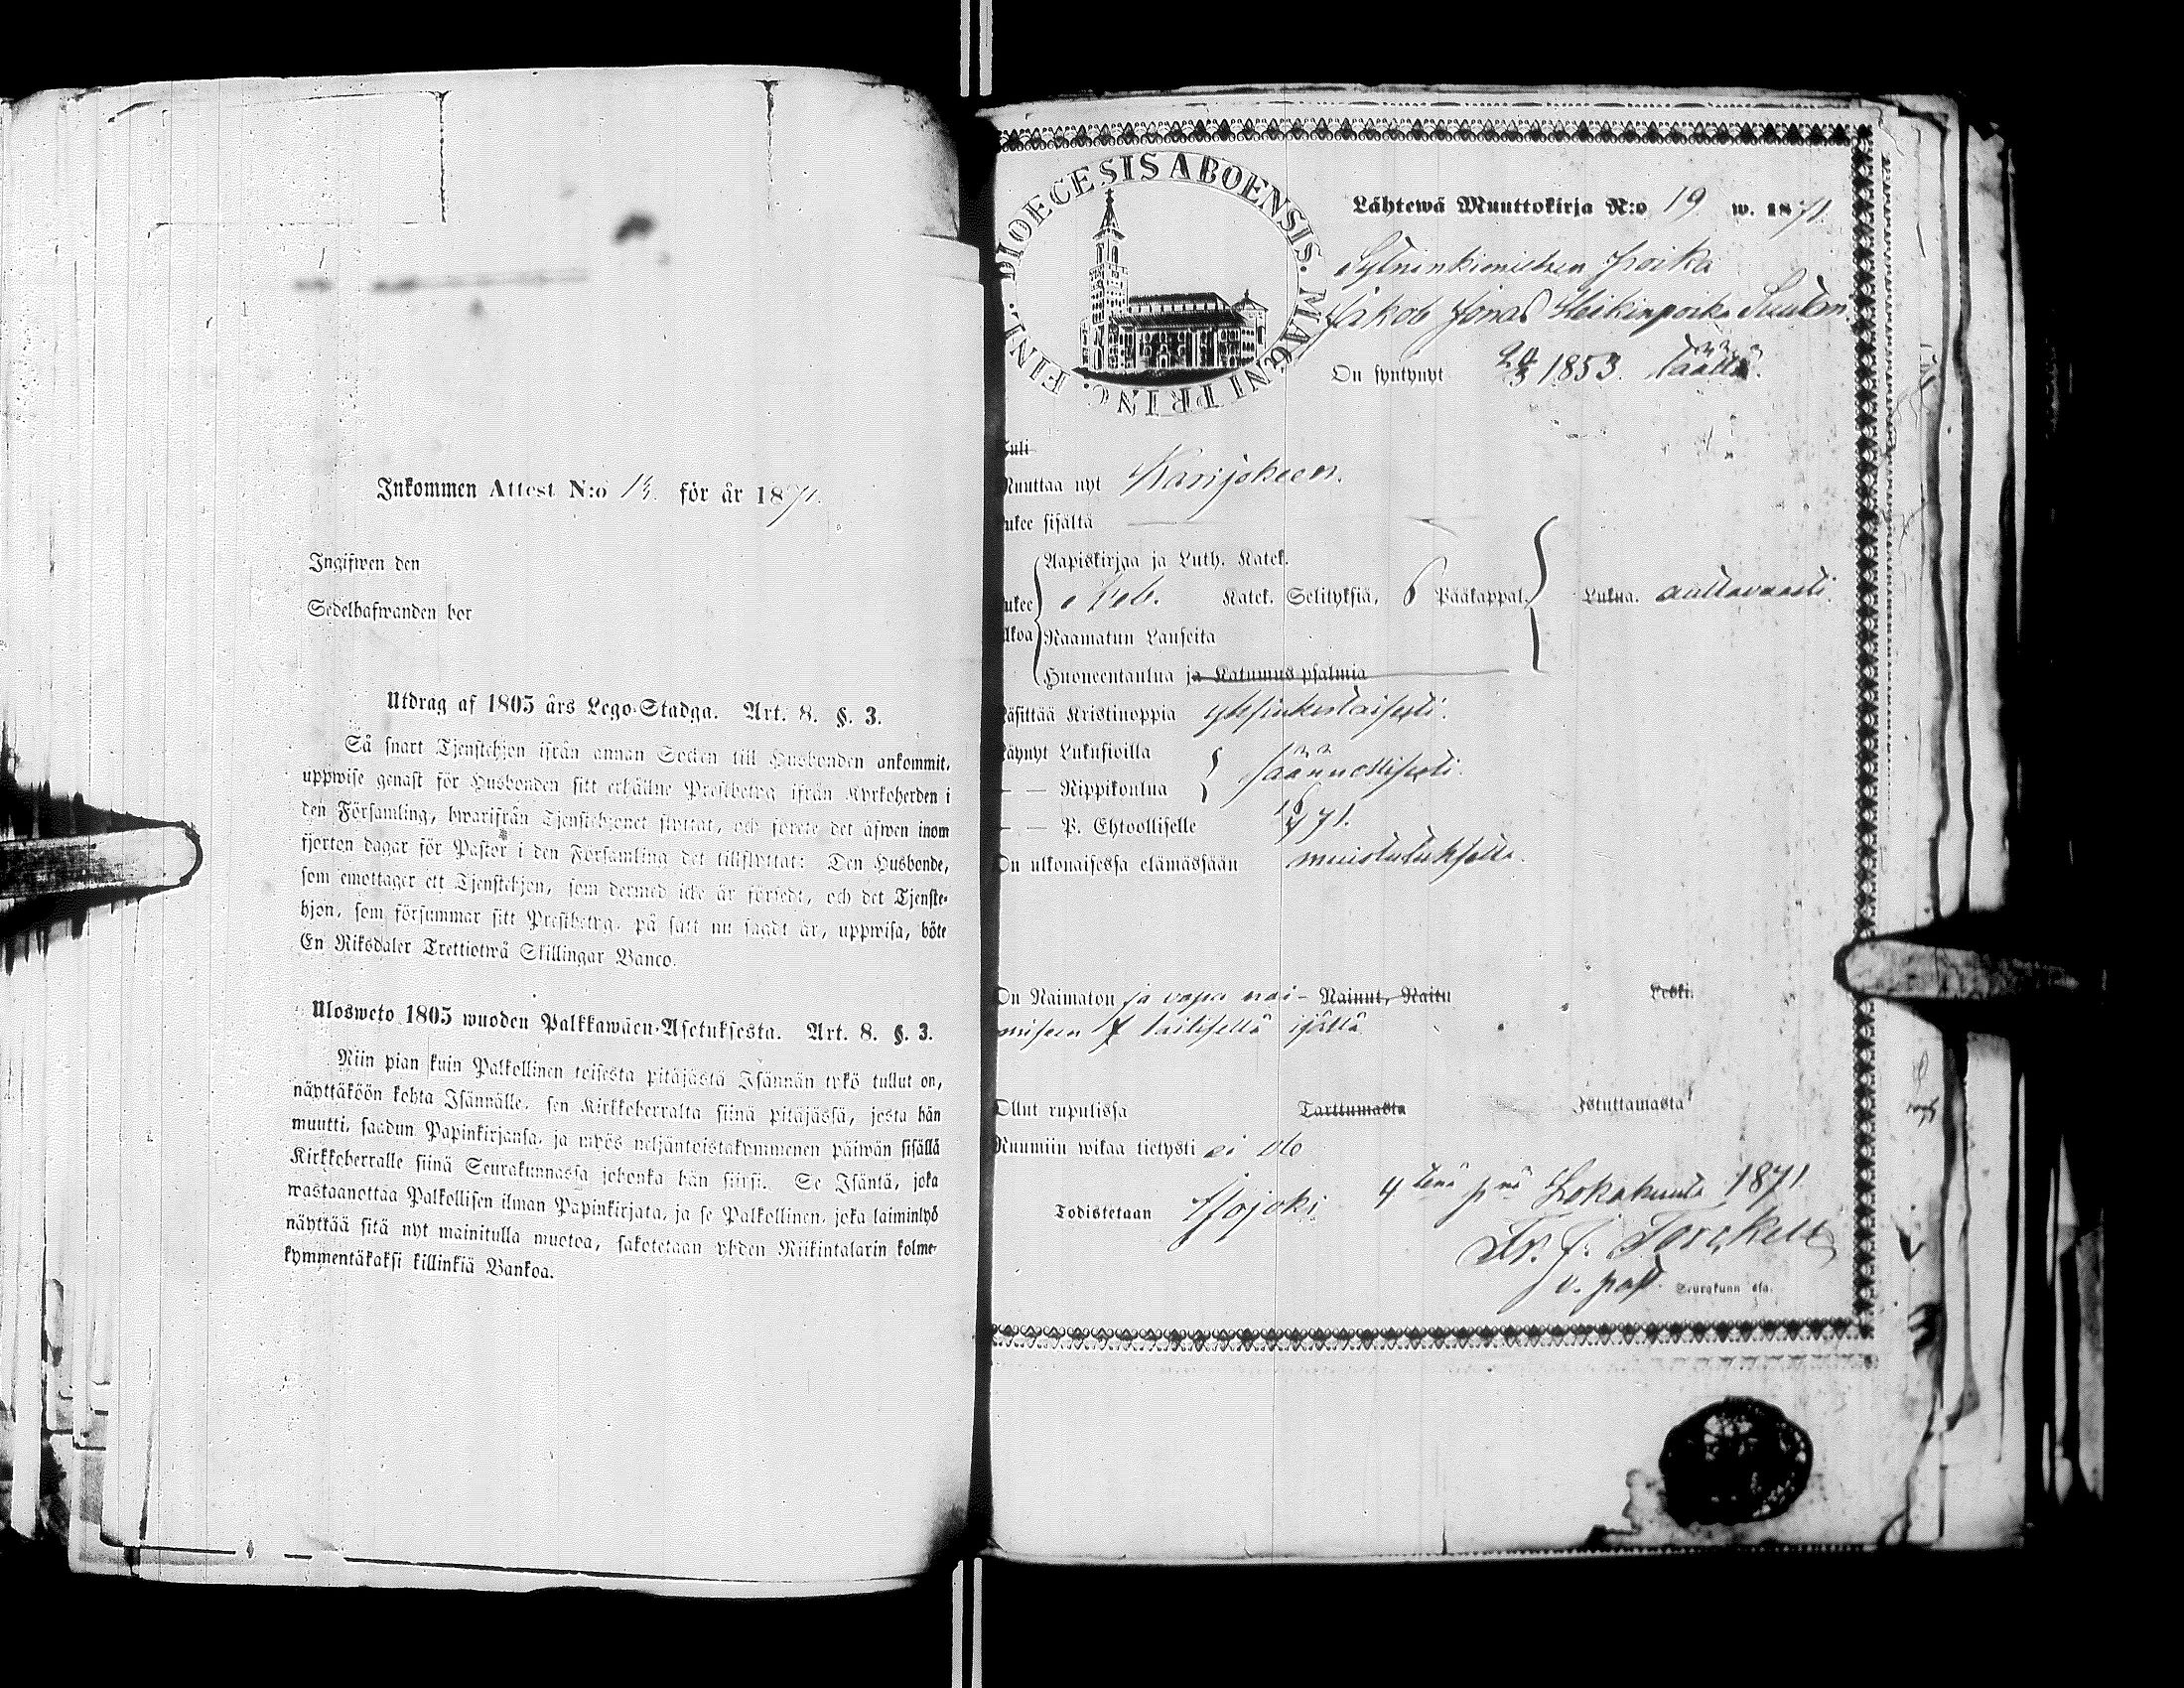 Inkommen Attest N:o 13. för år 1871.
Ingifwen den
Sedelhafwanden bor
Utdrag af 1805 års Lego-Stadga. Art. 8. §. 3.
Så snart Tjenstehjon ifrån annan Socken till Husbonden ankommit,
uppwise genast för Husbonden sitt erhållne Prestbetyg ifrån Kyrkoherden i
den Församling, hwarifrån Tjenstehjonet flyttat, och förete det äfwen inom
fjorton dagar för Pastor i den Församling det tillflyttat: Den Husbonde,
som emottager ett Tjenstehjon, som dermed icke är försedt, och det Tjenste-
hjon, som försummar sitt Prestbetyg, på sätt nu sagdt är, uppwisa, böte
En Riksdaler Trettiotwå Skillingar Banco.
Ulosweto 1805 wuoden Palkkawäen-Asetuksesta. Art. 8. §. 3.
Niin pian kuin Palkollinen toisesta pitäjästä Isännän tykö tullut on,
näyttäköön kohta Isännälle, sen Kirkkoherralta siinä pitäjässä, josta hän
muutti, saadun Papinkirjansa, ja myös neljäntoistakymmenen päiwän sisällä
Kirkkoherralle siinä Seurakunnassa johonka hän siirsi. Se Isäntä, joka
wastaanottaa Palkollisen ilman Papinkirjata, ja se Palkollinen, joka laiminlyö
näyttää sitä nyt mainitulla muotoa, sakotetaan yhden Riikintalarin kolme-
kymmentäkaksi killinkiä Bankoa.
DIOECESIS ABOENSIS. MAGNI PRINC. FINL.
Lähtewä Muuttokirja N:o 19 w. 1871.
poika
Jakob Jonas Heikinpoika
On syntynyt 1853. täällä.
Tuli
Muuttaa nyt Karijokeen.
Lukee sisältä
Aapiskirjaa ja Luth. Katek.
Lukee Katek. Selityksiä, 6 Pääkappal. Lukua. auttavasti.
Ulkoa Raamatun Lauseita
Huoneentaulua ja Katumus psalmia
Käsittää Kristinoppia yksinkertaisesti.
Käynyt Lukusioilla
— — Rippikoulua säännöllisesti.
— — P. Ehtoolliselle 71.
On ulkonaisessa elämässään muistutuksetta.
On Naimaton ja vapa nai- Nainut, Naitu Leski.
miseen laillisella ijällä
Ollut rupulissa Tarttumasta Istuttamasta
Ruumiin wikaa tietysti ei ole
Todistetaan Isojoki 4 tenä p:nä Lokakuuta 1871
v. past. Seurakunn ssa.